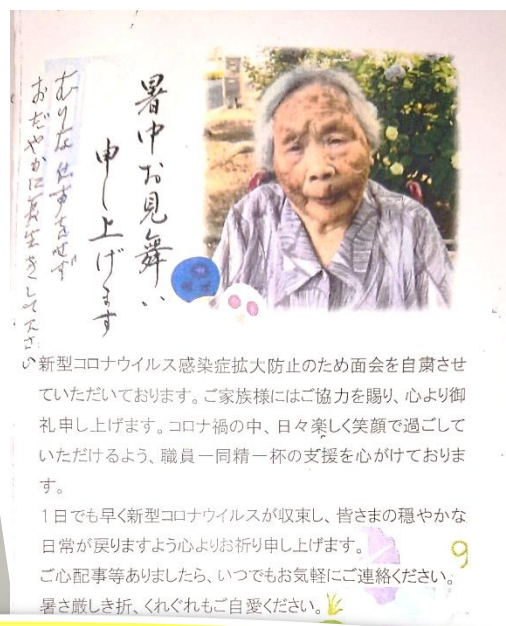 暑中お見舞い
申し上げます
むりな仕事をせず
おだやかに長生きして下さい
新型コロナウイルス感染症拡大防止のため面会を自粛させ
ていただいております。ご家族様にはご協力を賜り、心より御
礼申し上げます。コロナ禍の中、日々楽しく笑顔で過ごして
いただけるよう、職員一同精一杯の支援を心がけておりま
す。
1日でも早く新型コロナウイルスが収束し、皆さまの穏やかな
日常が戻りますよう心よりお祈り申し上げます。
ご心配事等ありましたら、いつでもお気軽にご連絡ください。
暑さ厳しき折、くれぐれもご自愛ください。